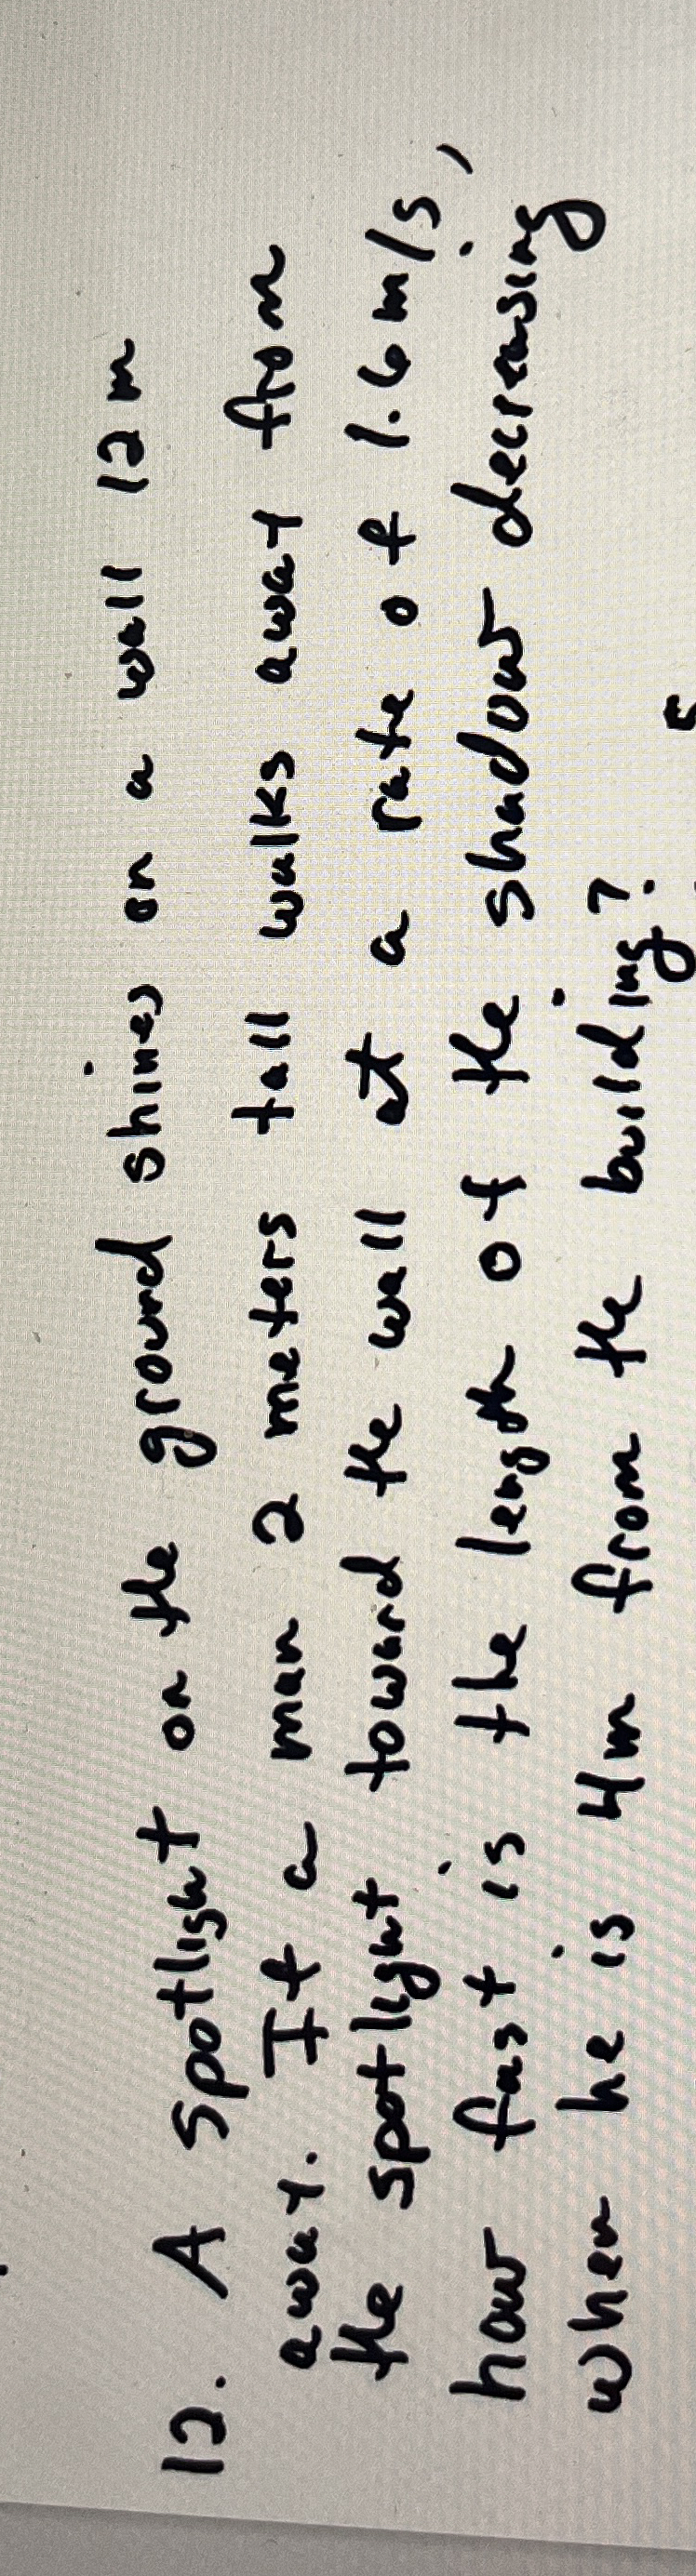 12. A spotlight on the ground shines on a wall 12 m
away. If a man 2 meters tall walks away from
the spotlight toward the wall at a rate of 1.6 m/s,
how fast is the length of the shadow decreasing
when he is 4m from the building?